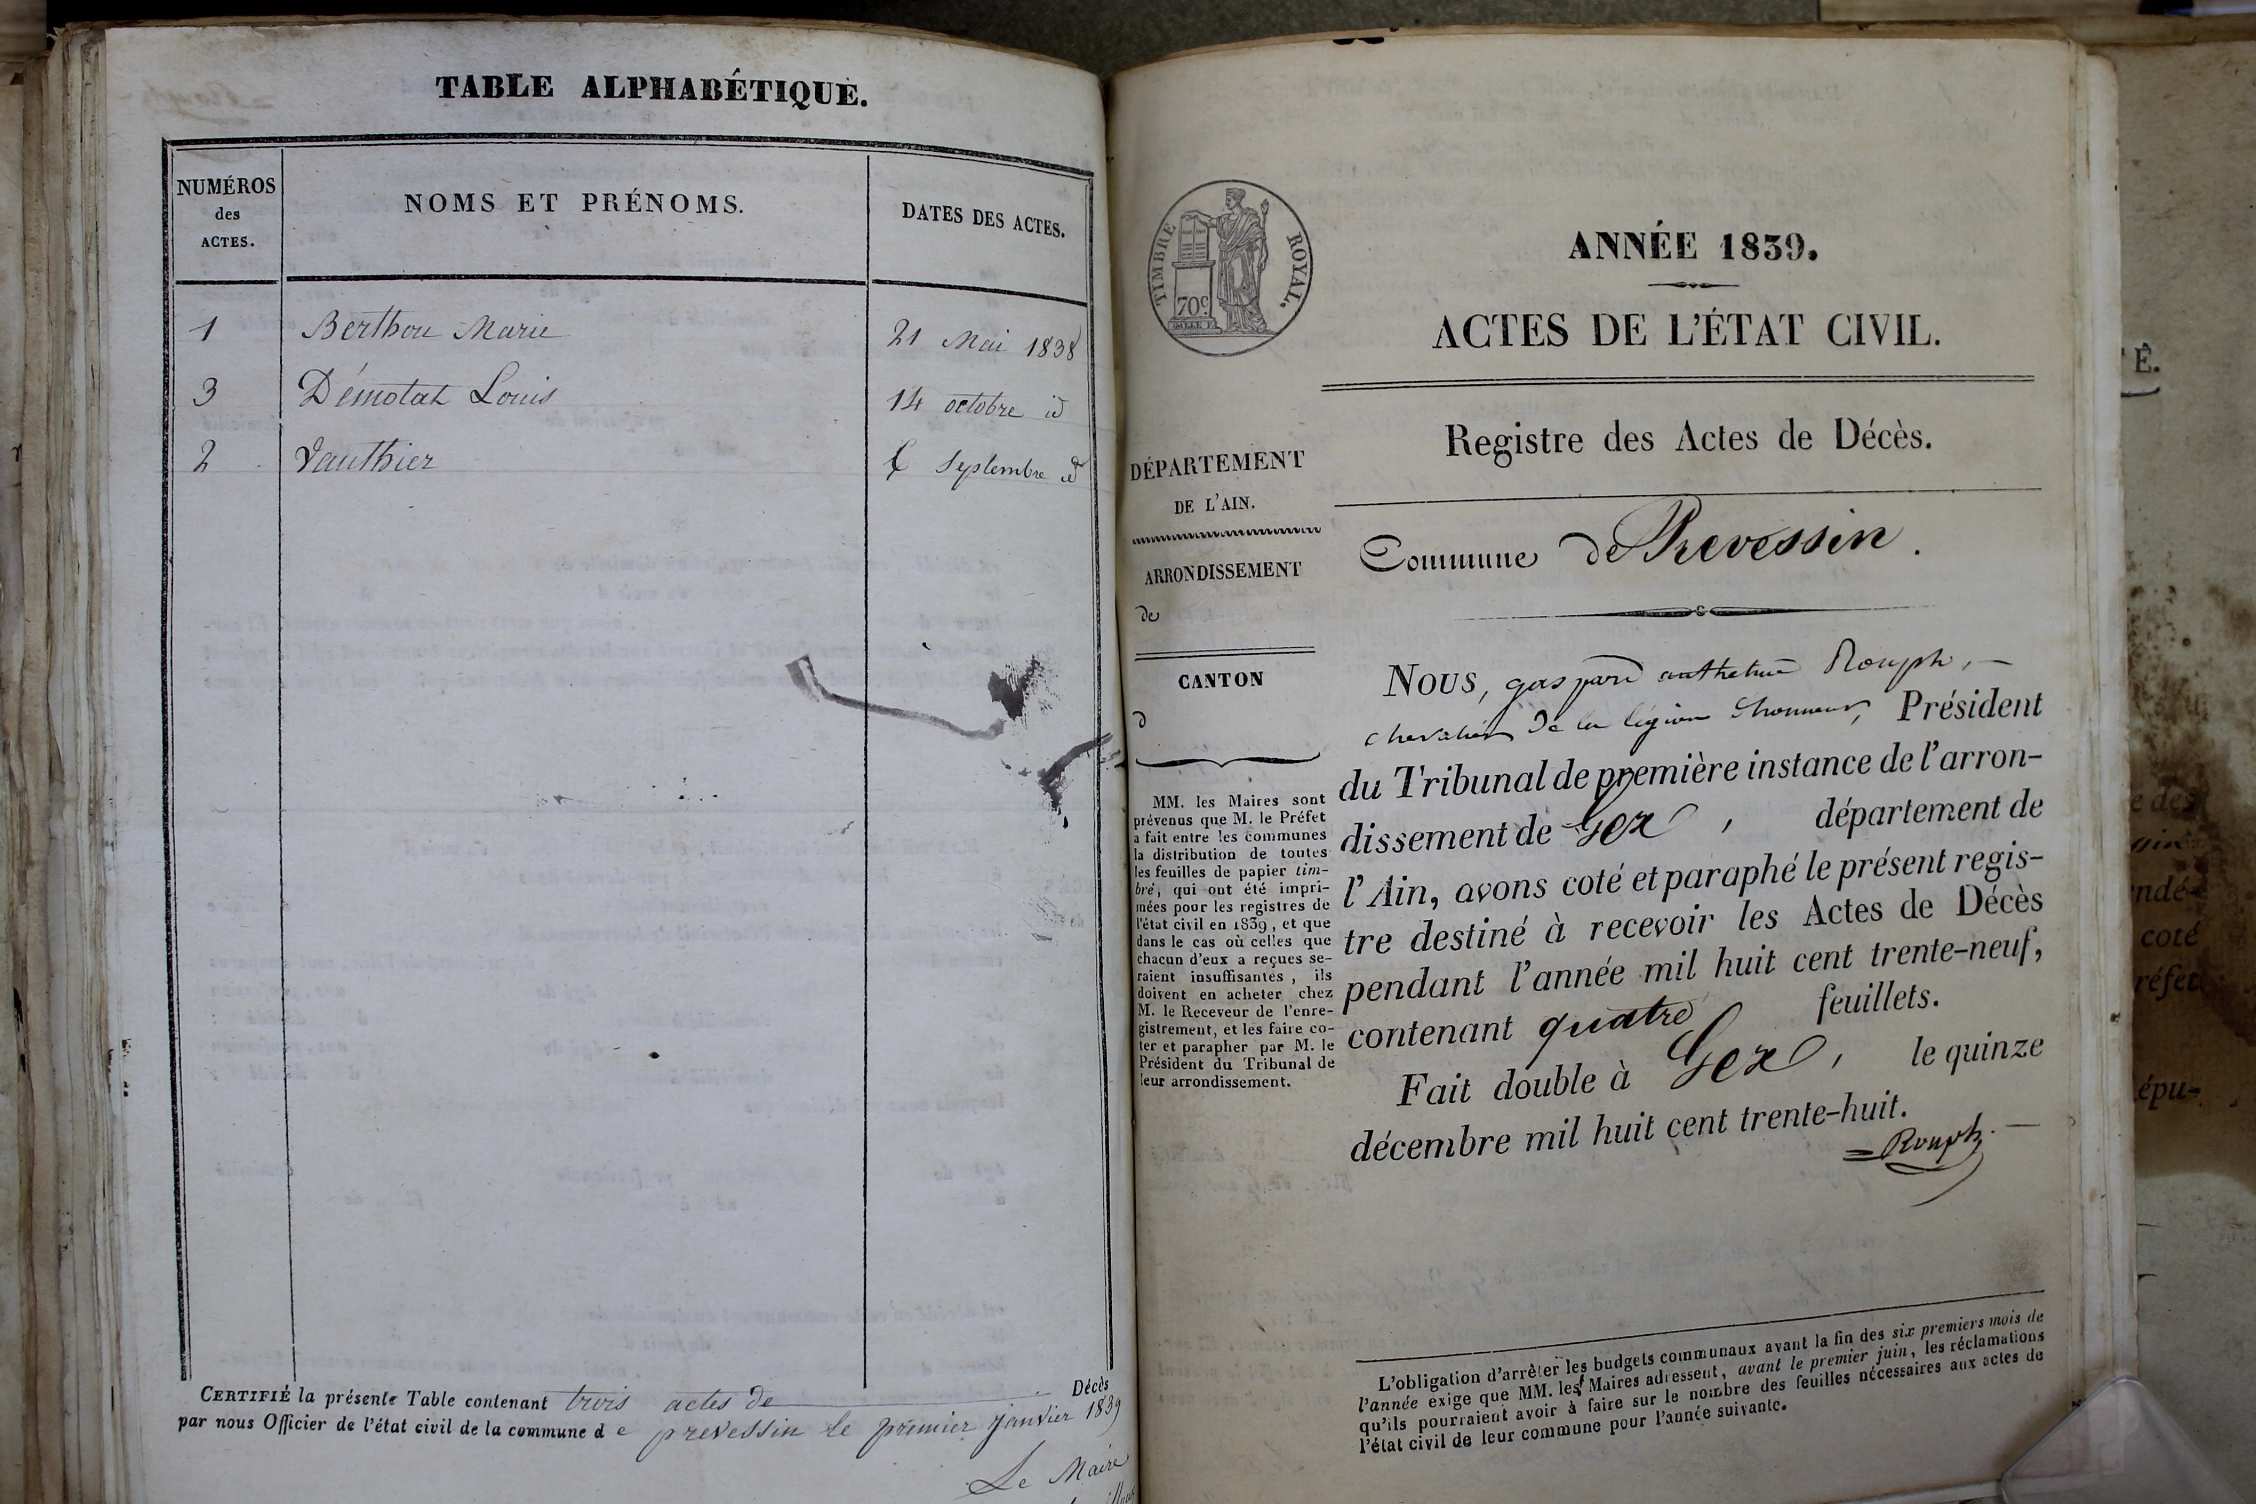 TABLE ALPHABÉTIQUE.
NUMÉROS
des
ACTES.
NOMS ET PRÉNOMS.
DATES DES ACTES.
1 Berthou Marie 21 Mai 1838
3 Démotat Louis 14 octobre id
2 Vauthier Septembre id
CERTIFIÉ la présente Table contenant trois actes de Décès
par nous Officier de l'état civil de la commune de prevessin le premier janvier 1839
Le Maire
TIMBRE ROYAL.
70c.
ANNÉE 1839.
ACTES DE L'ÉTAT CIVIL.
Registre des Actes de Décès.
DÉPARTEMENT
DE L'AIN.
ARRONDISSEMENT
de
CANTON
d
MM. les Maires sont
prévenus que M. le Préfet
a fait entre les communes
la distribution de toutes
les feuilles de papier tim-
bré, qui ont été impri-
mées pour les registres de
l'état civil en 1839, et que
dans le cas où celles que
chacun d'eux a reçues se-
raient insuffisantes, ils
doivent en acheter chez
M. le Receveur de l'enre-
gistrement, et les faire co-
ter et parapher par M. le
Président du Tribunal de
leur arrondissement.
Commune de Prevessin.
Nous, gaspard Rouph,
chevalier de la légion d'honneur, Président
du Tribunal de première instance de l'arron-
dissement de Gex, département de
l'Ain, avons coté et paraphé le présent regis-
tre destiné à recevoir les Actes de Décès
pendant l'année mil huit cent trente-neuf,
contenant quatre feuillets.
Fait double à Gex, le quinze
décembre mil huit cent trente-huit.
Rouph
L'obligation d'arrêter les budgets communaux avant la fin des six premiers mois de
l'année exige que MM. les Maires adressent, avant le premier juin, les réclamations
qu'ils pourraient avoir à faire sur le nombre des feuilles nécessaires aux actes de
l'état civil de leur commune pour l'année suivante.
É.
e des
ndé-
coté
réfet
épu-